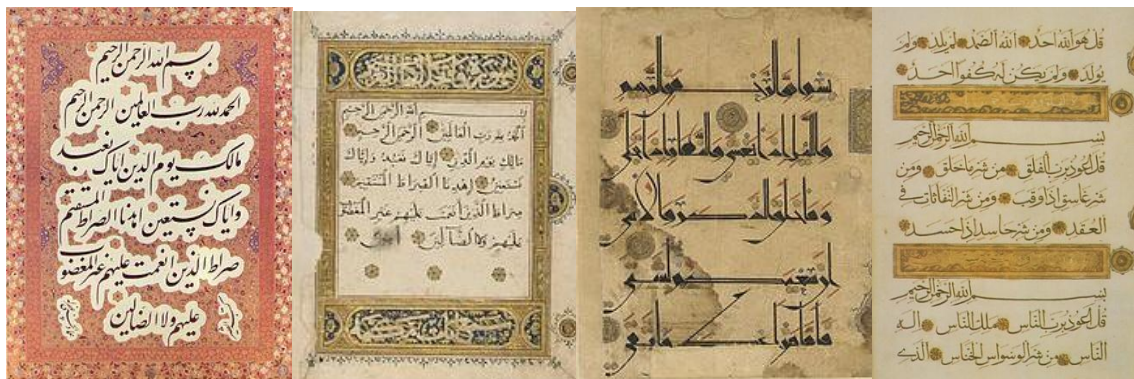 بسم الله الرحمن الرحيم
الحمد لله رب العالمين الرحمن الرحيم
مالك يوم الدين اياك نعبد
واياك نستعين اهدنا الصراط المستقيم
صراط الذين انعمت عليهم غير المغضوب
عليهم ولا الضالين
بسم الله الرحمن الرحيم
الحمد لله رب العالمين الرحمن الرحيم
مالك يوم الدين اياك نعبد واياك
نستعين اهدنا الصراط المستقيم
صراط الذين انعمت عليهم غير المغضوب
عليهم ولا الضالين آمين
والليل اذا يغشى والنهار اذا تجلى
وما خلق الذكر والانثى
ان سعيكم لشتى
فاما من اعطى واتقى
قل هو الله احد الله الصمد لم يلد ولم
يولد ولم يكن له كفوا احد
بسم الله الرحمن الرحيم
قل اعوذ برب الفلق من شر ما خلق ومن
شر غاسق اذا وقب ومن شر النفاثات في
العقد ومن شر حاسد اذا حسد
بسم الله الرحمن الرحيم
قل اعوذ برب الناس ملك الناس اله
الناس من شر الوسواس الخناس الذي